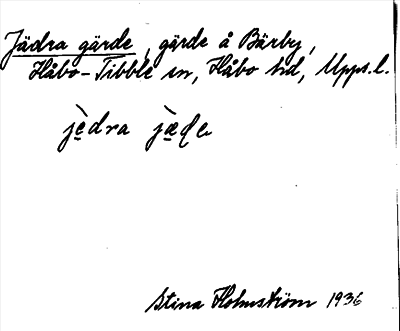 Jädra gärde, gärde å Bärby,
Håbo-Tibble sn, Håbo hd, Upps. l.
jèdra jæ̀ḍe
Stina Holmström 1936